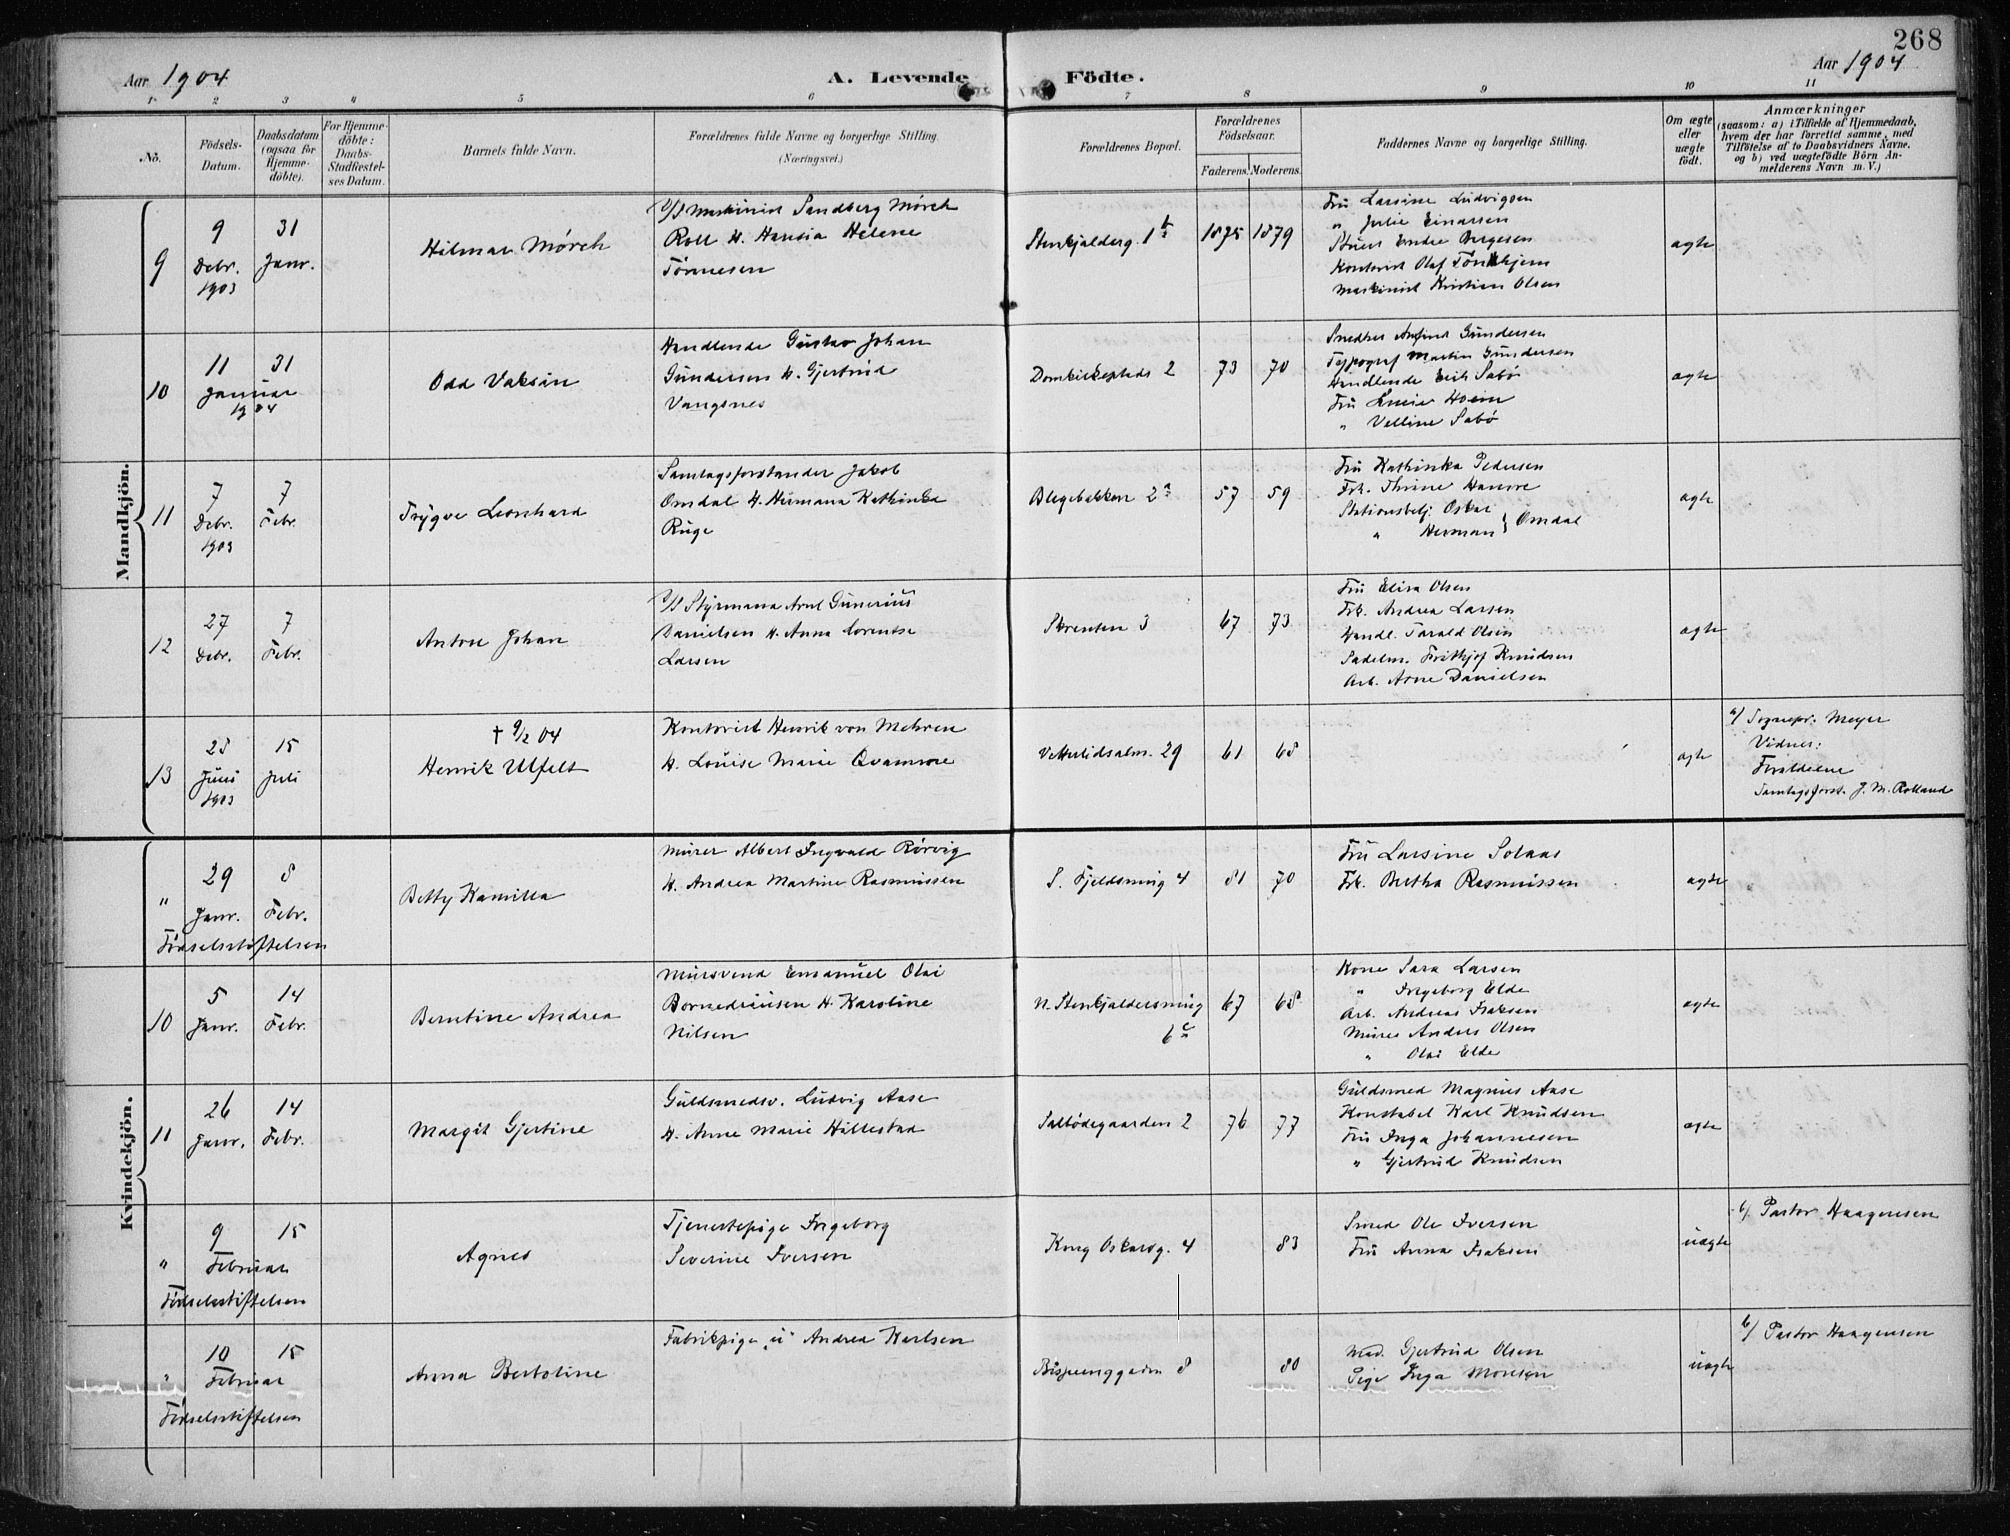 268
Aar 1904
A. Levende Födte.
Aar 1904
1 2 3 4 5 6 7 8 9 10 11
No.
Födsels-Datum.
Daabsdatum (ogsaa for Hjemme-döbte).
For Hjemme-döbte: Daabs-Stadfæstel-ses Datum.
Barnets fulde Navn.
Forældrenes fulde Navne og borgerlige Stilling.
(Næringsvei.)
Forældrenes Bopæl.
Forældrenes Födselsaar.
Faderens. Moderens.
Faddernes Navne og borgerlige Stilling.
Om ægte eller uægte födt.
Anmærkninger
(saasom: a) i Tilfælde af Hjemmedaab,
hvem der har forrettet samme, med
Tilföielse af to Daabsvidners Navne.
og b) ved uægtefödte Börn An-
melderens Navn m. V.)
Mandkjön.
9
9 Debr. 1903
31 Janr.
Hilmar Mørch
D/S Maskinist Sandberg Mørch
Roll H. Hansia Helene
Tønnesen
Stenkjælderg. 1 b
1875 1879
Fru Larsine Ludvigsen
" Julie Einarsen
Endre Bergesen
Kontorist Olaf
Maskinist Kristian Olsen
ægte
10
11 31
Januar
1904
Odd Vaksin
Handlende Gustav Johan
Gundersen H. Gjertrud
Vangsnes
Domkirkeplads 2
73 70
Snedker Gundersen
Typograf Martin Gundersen
Handlende Erik Sabø
Fru
" Velline Sabø
ægte
11
7 Debr. 1903
7 Febr.
Trygve Leonhard
Samlagsforstander Jakob
Omdal H. Hermana Kathinka
Ruge
Blegebakken 2 a
57 59
Fru Kathinka Pedersen
Frk. Thrine
Stationsbetj. Oskar
" Herman } Omdal
ægte
12
27 Debr.
7 Febr.
Anton Johan
D/S Styrmand Arnt Gunerius
Danielsen H. Anna Lorentse
Larsen
Skrenten 3
67 73
Fru Elisa Olsen
Frk. Andrea Larsen
Handl. Tarald Olsen
Sadelm. Frithjof Knudsen
Arb. Arne Danielsen
ægte
13
25 Juni 1903
15 Juli
† 9/2 04
Henrik Ulfelt
Kontorist Henrik von Mehren
H. Louise Marie Qvamme
Vetterlidsalm. 29
61 68
ægte
a/ Sognepr. Meyer
Vidner:
Forældrene
Samlagsforst. J. M. Rolland
Kvindekjön.
"
29 Janr.
8 Febr.
Fødselsstiftelsen
Betty Kamilla
Murer Albert Ingvald Rørvig
H. Andrea Martine Rasmussen
S. Fjeldsmug 4
81 70
Fru Larsine Solaas
Frk. Bertha Rasmussen
ægte
10
5 Janr.
14 Febr.
Berntine Andrea
Mursvend Emanuel Olai
H. Karoline
Nilsen
N. Stenkjældersmug
6 c
67 68
Kone Sara Larsen
" Ingeborg Elde
Arb. Andreas Isaksen
Murer Anders Olsen
" Olai Elde
ægte
11
26 Janr.
14 Febr.
Margit Gjertine
Guldsmedsv. Ludvig Aase
H. Anne Marie Hillestad
Saltbodegaarden 2
76 77
Guldsmed Magnus Aase
Konstabel Karl Knudsen
Fru Inga Johannesen
" Gjertrud Knudsen
ægte
"
9 15
Februar
Fødselsstiftelsen
Agnes
Tjenestepige Ingeborg
Severine Iversen
Kong Oskarsg. 4
83
Smed Ole Iversen
Fru Anna Isaksen
uægte
b/ Pastor Haagensen
"
10 15
Februar
Fødselsstiftelsen
Anna Bertoline
Fabrikpige "u" Andrea Karlsen
Bispenggaden 8
80
Mad. Gjertrud Olsen
Pige Inga Monsen
uægte
b/ Pastor Haagensen